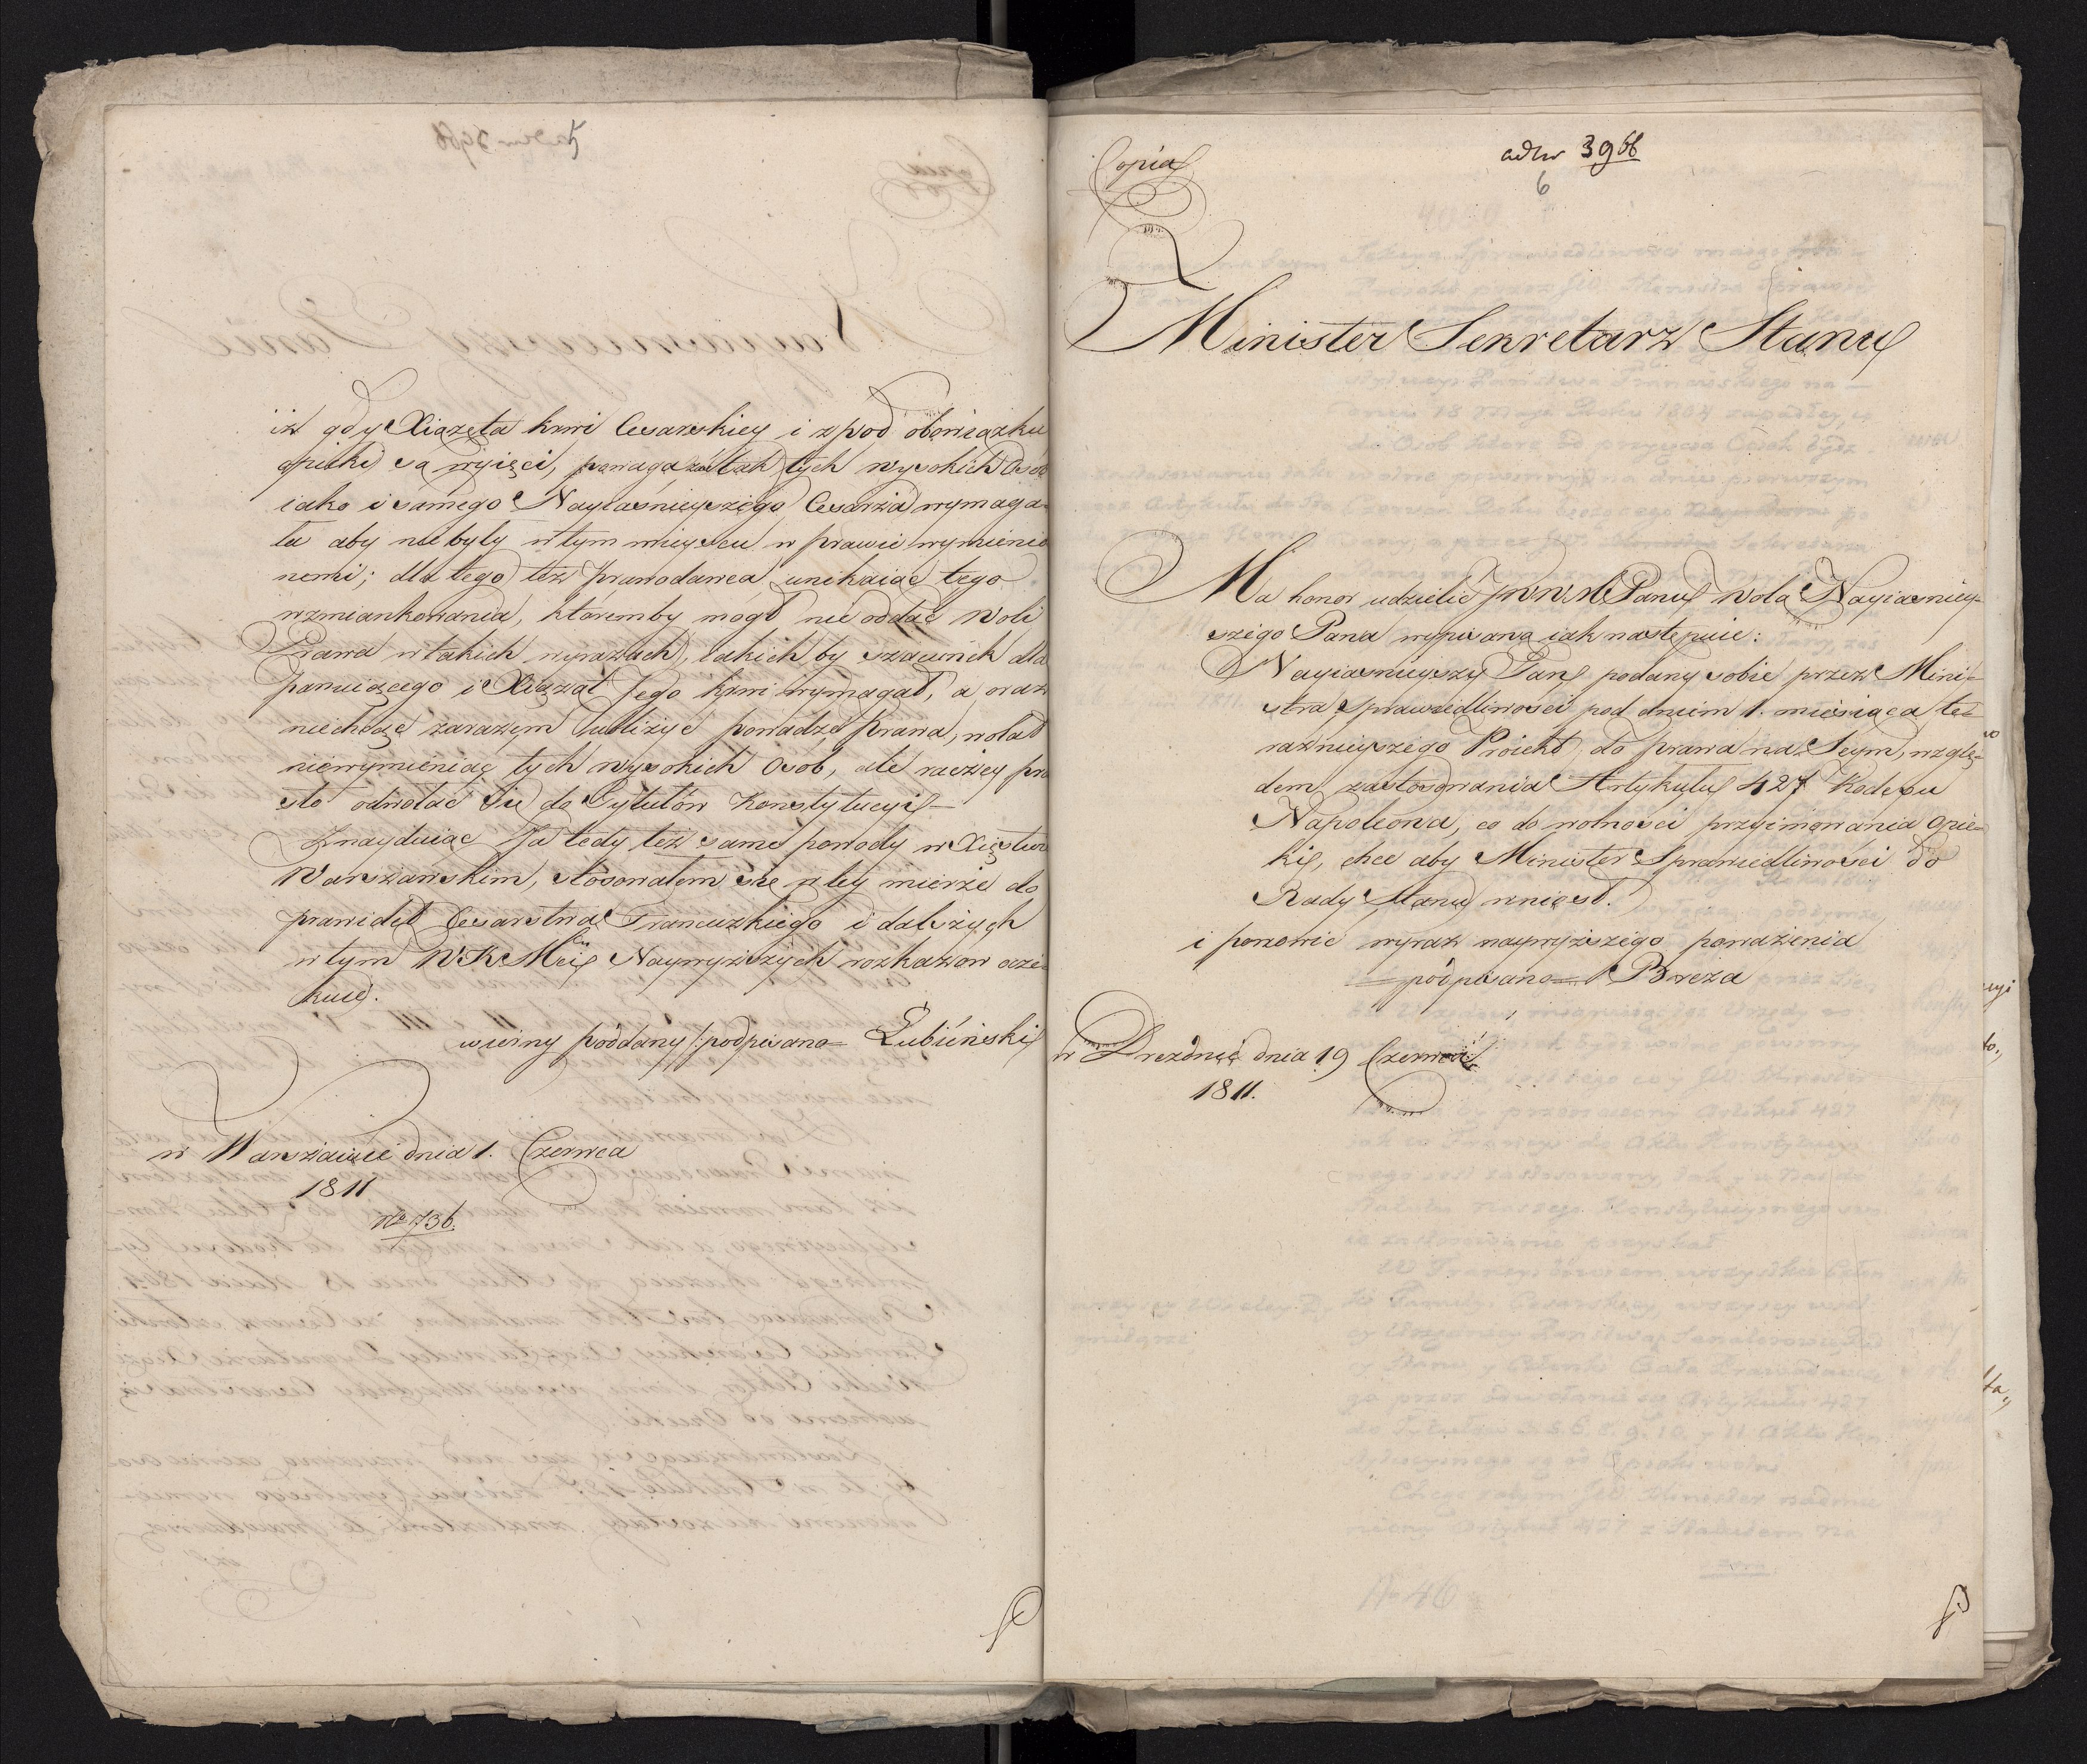 iż gdy Xiążęta krwi Cesarskiey i z pod obowiązku
opieki są wyięci, powaga zaś tak tych wysokich Osob
iako i samego Nayiaśnieyszego Cesarza wymaga-
ła aby nie były w tym mieyscu w prawie wymienio
nemi; dla tego też prawodawca unikaiąc tego
wzmiankowania, ktoremby mogł nie oddać woli
Prawa w takich wyrazach, iakich by szacunek dla
panuiącego i Xiążąt Jego krwi wymagał, a oraz
niechcąc zarazem ubliżyć powadze prawa, wolał
niewymieniać tych wysokich Osób, ale raczey pro
sto odwołać się do Tytułów Konstytucyi
Znayduiąc Ja tedy też same powody w Xięstwie
Warszawskim, stosowałem się w tey mierze do
prawideł Cesarstwa Francuzkiego i dalszych
w tym W. K. Mci Naywyższych rozkazow ocze
kuię.
wierny poddany /:podpisano Łubieński
w Warszawie dnia 1. Czerwca
1811
No 736.
Copia
ad Nr 3966
6
Minister Sekretarz Stanu
Ma honor udzielić JWW Panu Wolą Nayiaśniey-
szego Pana wypisaną iak następuie:
Nayiaśnieyszy Pan podany sobie przez Mini-
stra Sprawiedliwości pod dniem 1. miesiąca te-
raźnieyszego Proiekt do prawa na Seym, wzglę-
dem zastosowania Artykułu 427 Kodexu
Napoleona, co do wolności przyimowania Opie-
ki, chce aby Minister Sprawiedliwości do
Rady Stanu wniosł.
i ponowić wyraz naywyższego poważenia
podpisano Breza
w Dreznie dnia 19 Czerwca
1811.